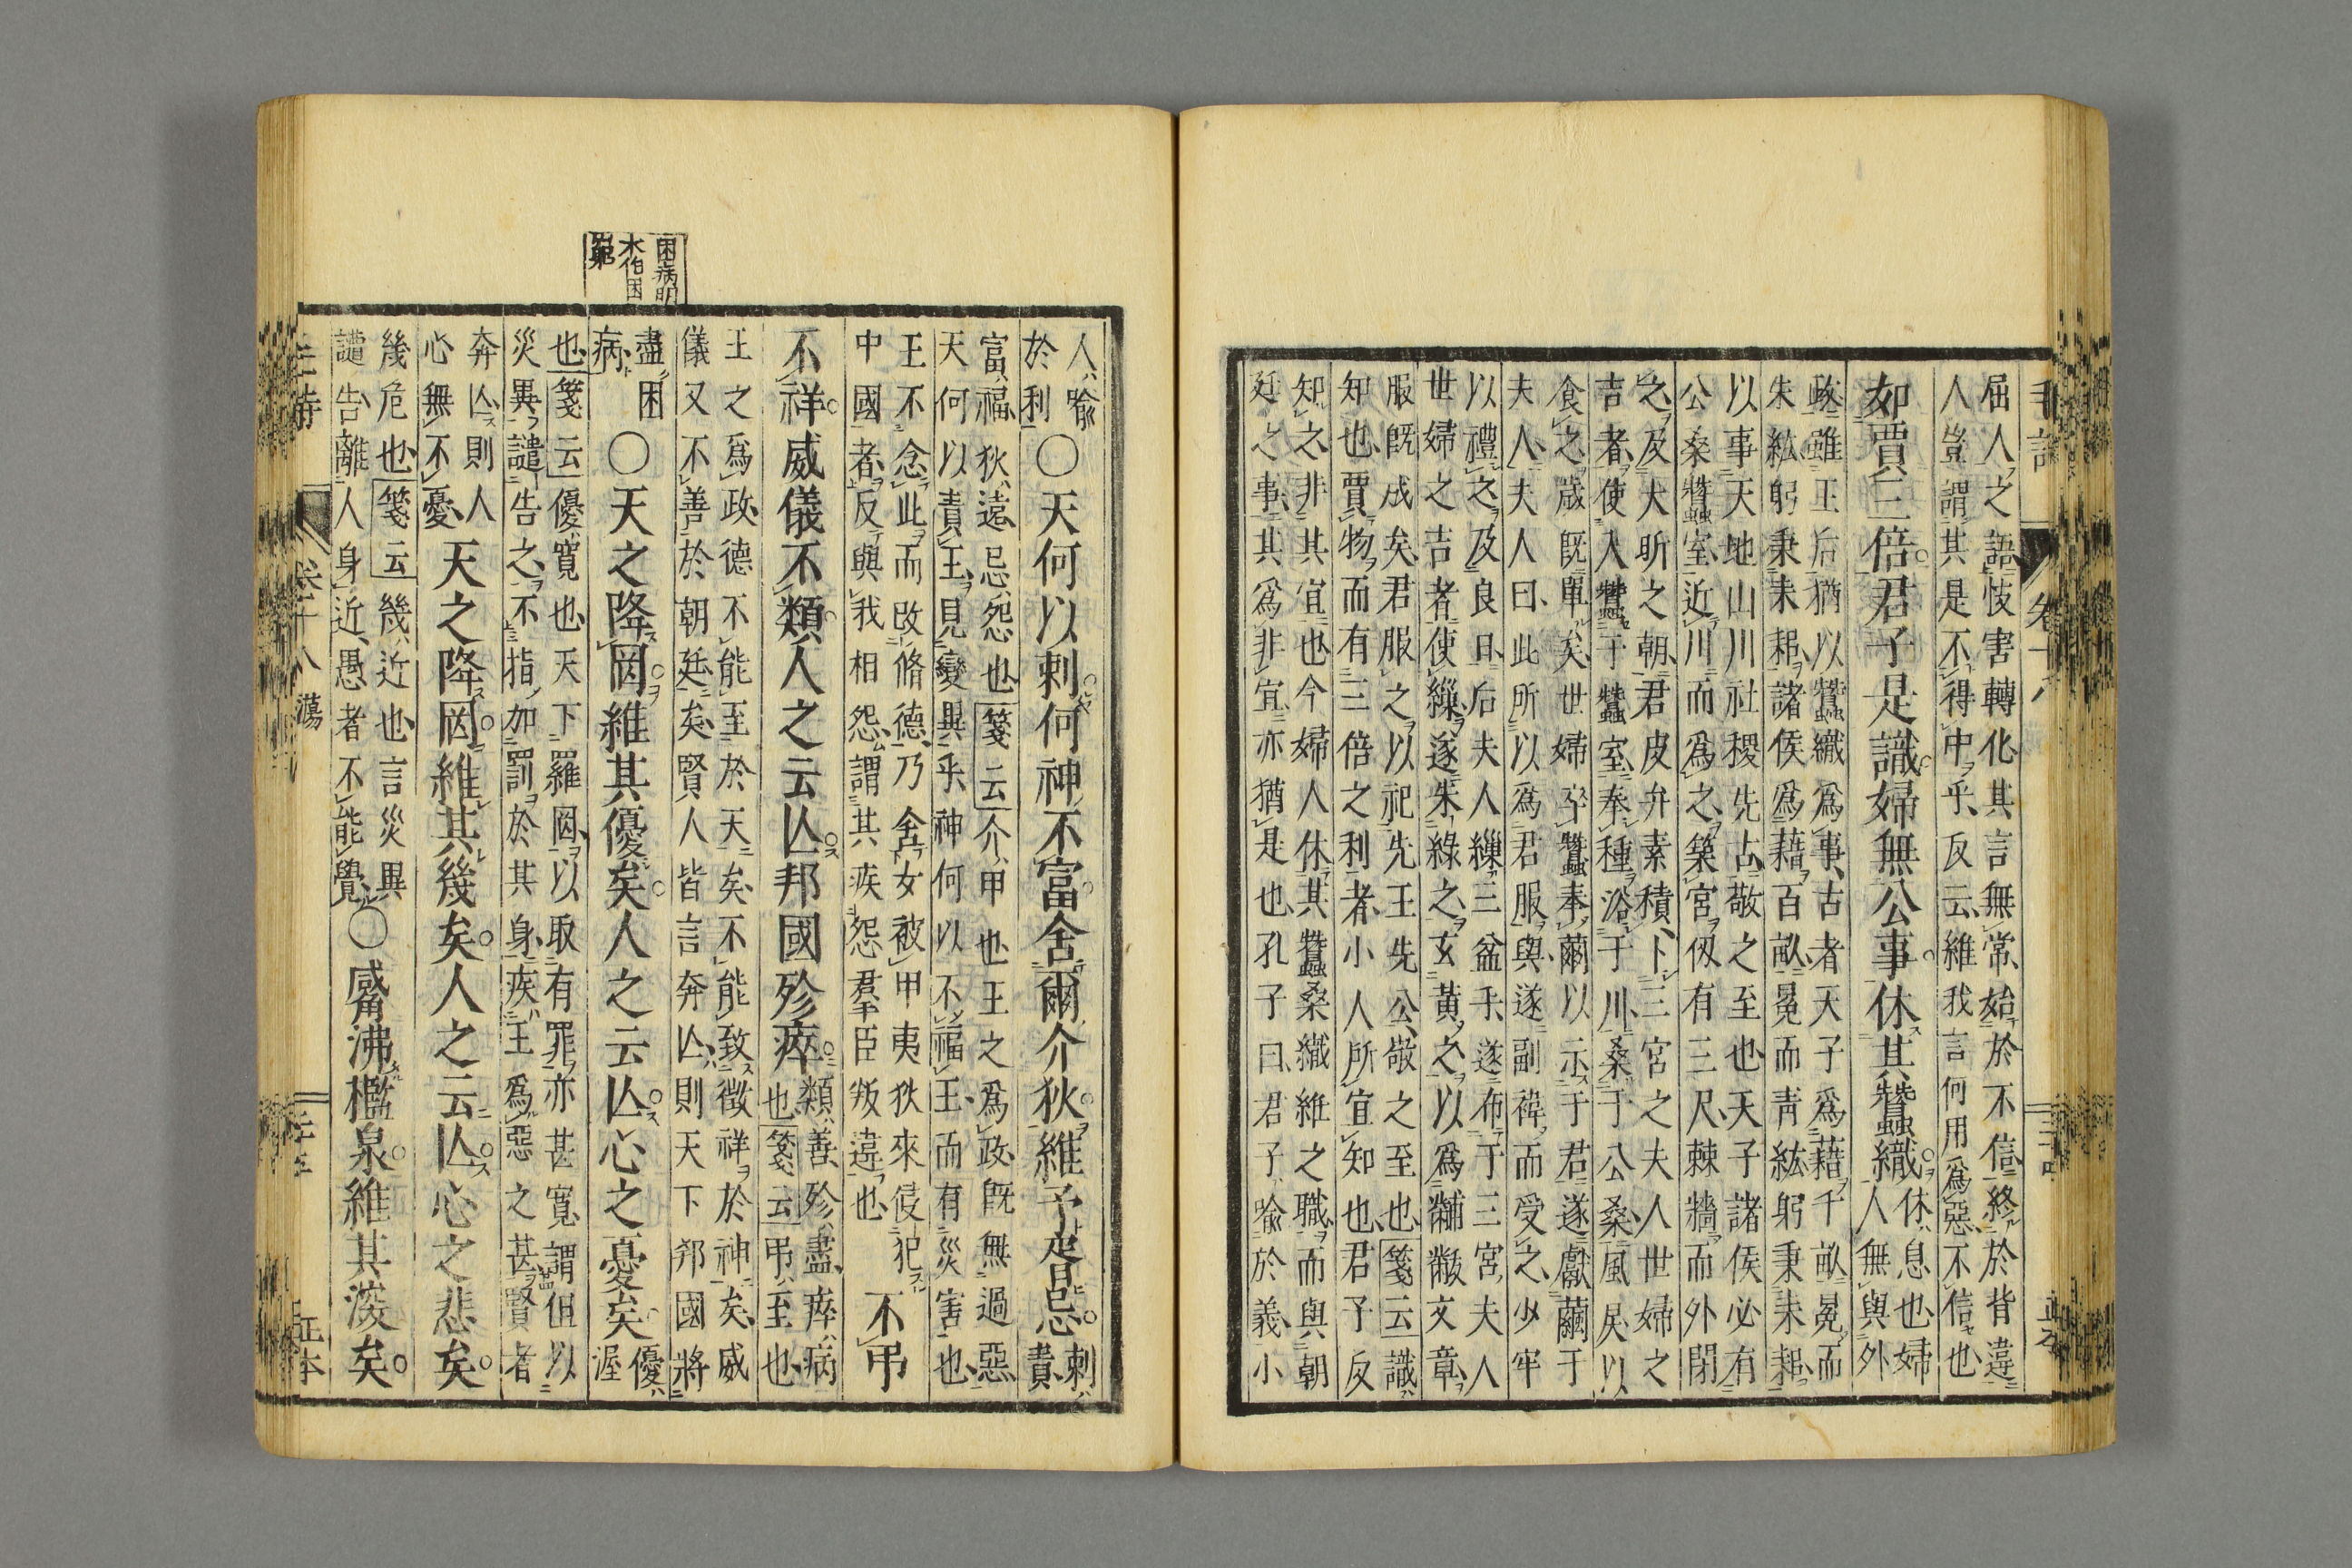 毛詩
卷十八
屈人之語忮害轉化其言無常始於不信終於背違
人豈謂其是不得中乎反云維我言何用爲惡不信也
如賈三倍君子是識婦無公事休其蠶織
休息也婦
人無與外
政雖王后猶以蠶織爲事古者天子爲藉千畝冕而
朱紘躬秉耒耜諸侯爲藉百畝冕而靑紘躬秉耒耜
以事天地山川社稷先古敬之至也天子諸侯必有
公桑蠶室近川而爲之築宮仞有三尺棘牆而外閉
之及大昕之朝君皮弁素積卜三宮之夫人世婦之
吉者使入蠶于蠶室奉種浴于川桑于公桑風戾以
食之歲既單矣世婦卒蠶奉繭以示于君遂獻繭于
夫人夫人曰此所以爲君服與遂副褘而受之少牢
以禮之及良日后夫人繅三盆手遂布于三宮夫人
世婦之吉者使繅遂朱綠之玄黃之以爲黼黻文章
服既成矣君服之以祀先王先公敬之至也箋云識
知也賈物而有三倍之利者小人所宜知也君子反
知之非其宜也今婦人休其蠶桑織維之職而與朝
廷之事其爲非宜亦猶是也孔子曰君子喻於義小
人喻
於利
○天何以刺何神不富舍爾介狄維予胥忌
刺
責
富福狄遠忌怨也箋云介甲也王之爲政既無過惡
天何以責王見變異乎神何以不福王而有災害也
王不念此而改脩德乃舍女被甲夷狄來侵犯
中國者反與我相怨謂其疾怨羣臣叛違也
不弔
不祥威儀不類人之云亾邦國殄瘁
類善殄盡瘁病
也箋云弔至也
王之爲政德不能至於天矣不能致徵祥於神矣威
儀又不善於朝廷矣賢人皆言奔亾則天下邦國將
盡困
病
困病明
木伯困
窮
○天之降罔維其優矣人之云亾心之憂矣
優
渥
也箋云優寬也天下羅罔以取有罪亦甚寬謂但以
災異譴告之不指加罰於其身疾王爲惡之甚賢者
奔亾則人
心無不憂
天之降罔維其幾矣人之云亾心之悲矣
幾危也箋云幾近也言災異
譴告離人身近愚者不能覺
○觱沸檻泉維其深矣
卷十八 蕩